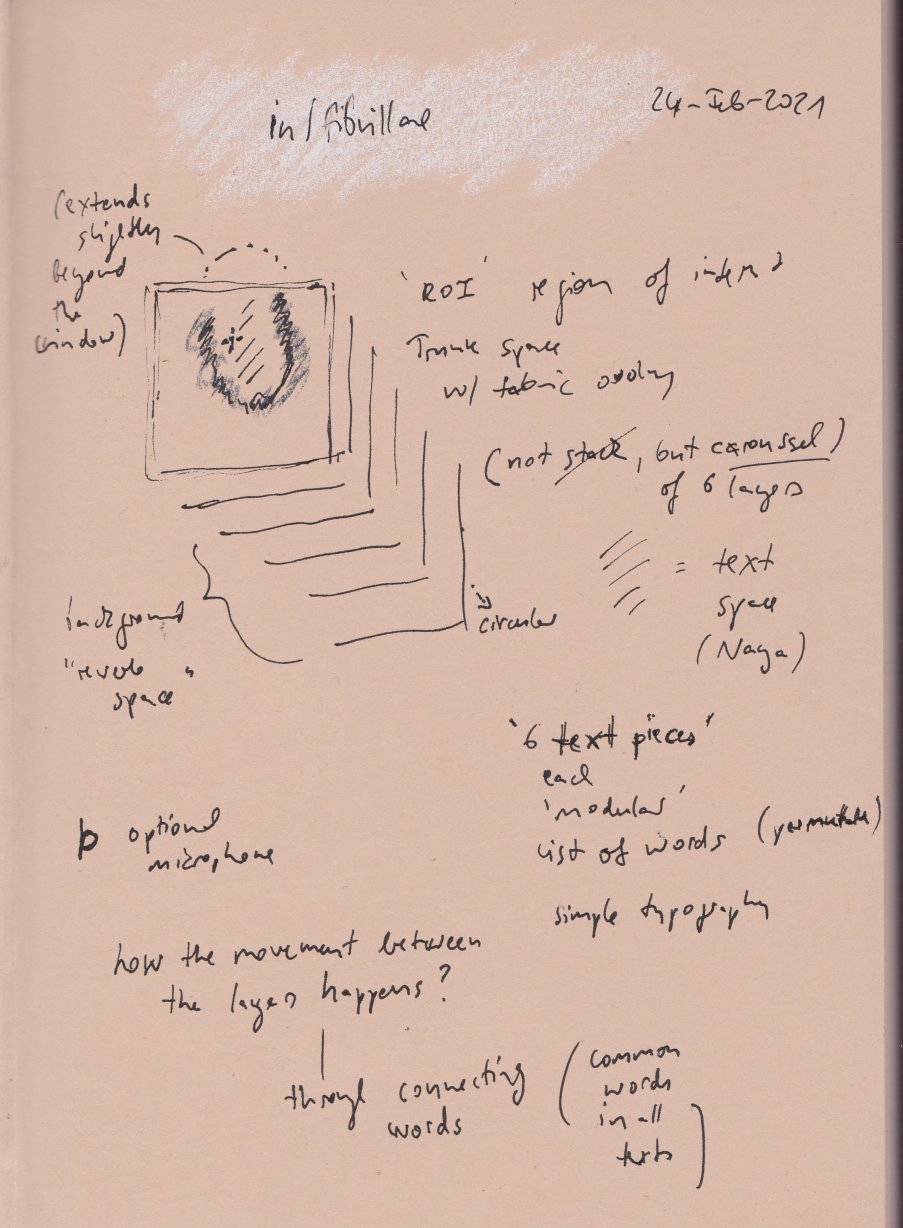 in/fibrillae
24-Feb-2021
(extends
slightly
beyond
the
window)
'ROI' region of interest
Trunk space
w/ fabric overlay
(not stack, but caroussel)
of 6 layers
= text
space
(Naya)
circular
background
"reverb
space"
'6 text pieces'
each
'modular'
list of words (permutable)
simple typography
optional
microphone
how the movement between
the layers happens?
through connecting
words
(common
words
in all
texts)